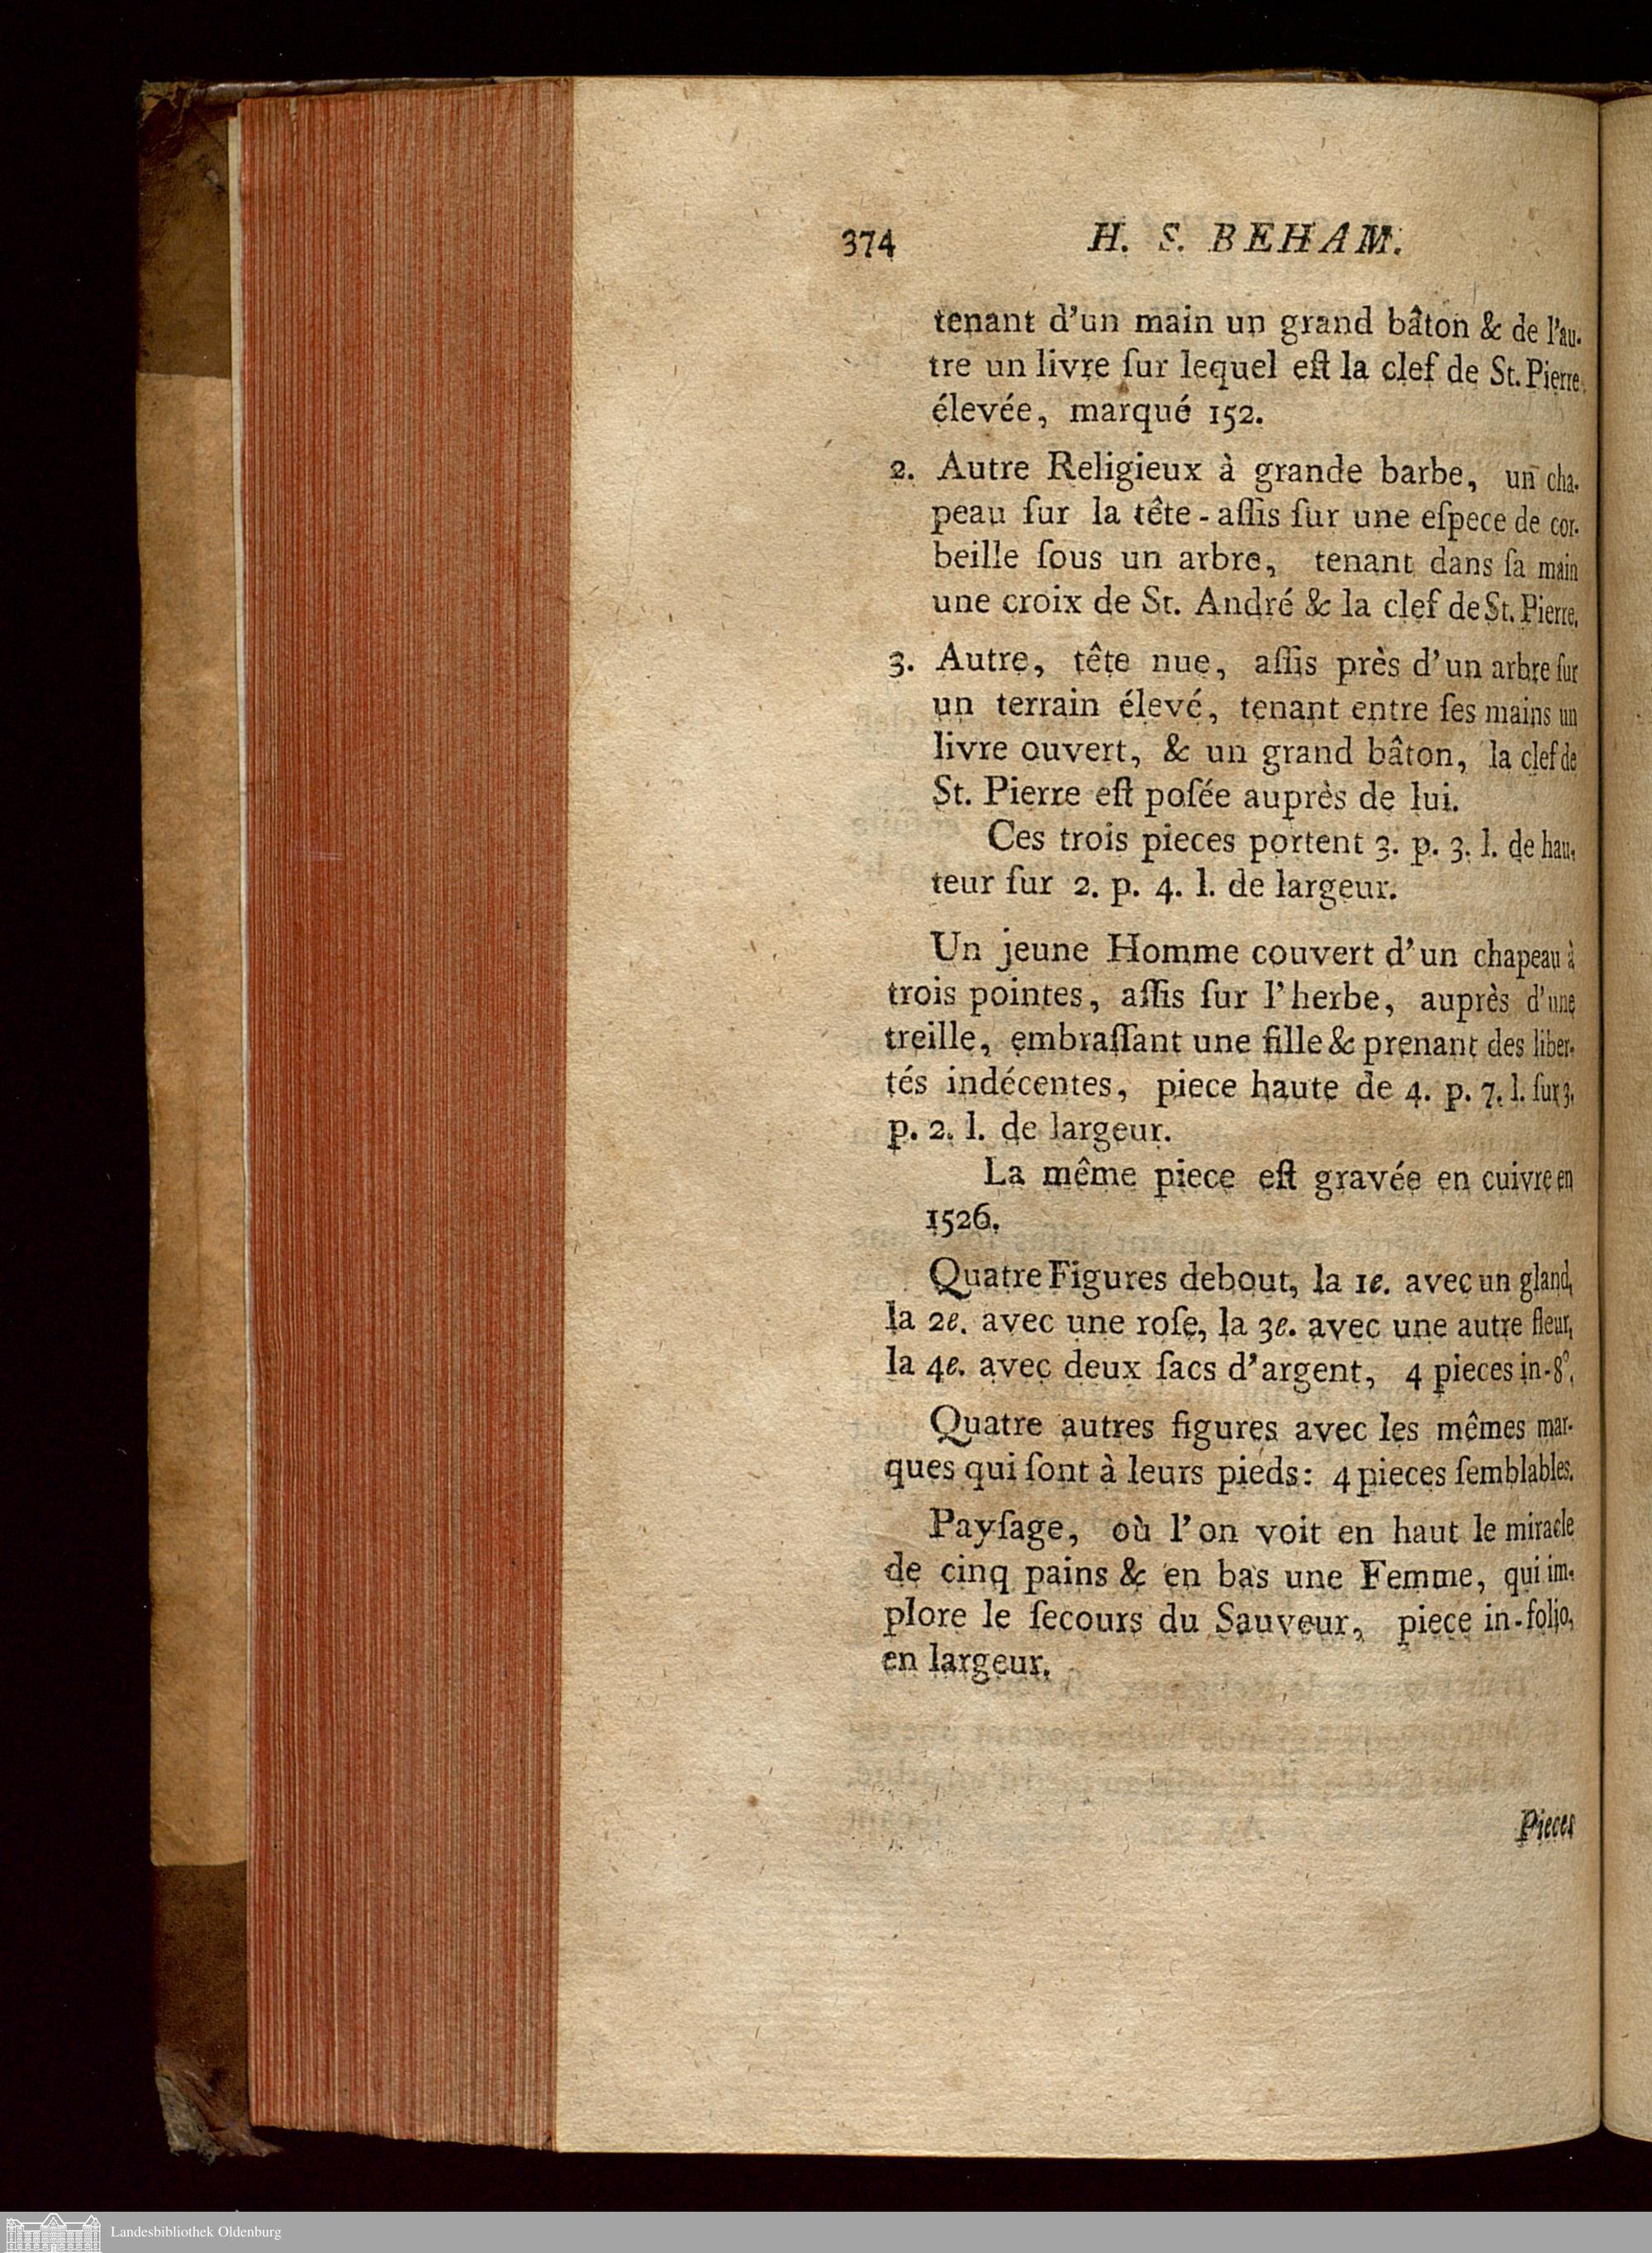 374 H. S. BEHAM.
tenant d'un main un grand bâton & de l'au-
tre un livre ſur lequel eſt la clef de St. Pierre
élevée, marqué 152.
2. Autre Religieux à grande barbe, un cha-
peau ſur la tête - aſſis ſur une eſpece de cor-
beille ſous un arbre, tenant dans ſa main
une croix de St. André & la clef de St. Pierre.
3. Autre, tête nue, aſſis près d'un arbre ſur
un terrain élevé, tenant entre ſes mains un
livre ouvert, & un grand bâton, la clef de
St. Pierre eſt poſée auprès de lui.
Ces trois pieces portent 3. p. 3. l. de hau-
teur ſur 2. p. 4. l. de largeur.
Un jeune Homme couvert d'un chapeau à
trois pointes, aſſis ſur l'herbe, auprès d'une
treille, embraſſant une fille & prenant des liber-
tés indécentes, piece haute de 4. p. 7. l. ſur 3.
p. 2. l. de largeur.
La même piece eſt gravée en cuivre en
1526.
Quatre Figures debout, la 1e. avec un gland,
la 2e. avec une roſe, la 3e. avec une autre fleur,
la 4e. avec deux ſacs d'argent, 4 pieces in-8°.
Quatre autres figures avec les mêmes mar-
ques qui ſont à leurs pieds: 4 pieces ſemblables.
Payſage, où l'on voit en haut le miracle
de cinq pains & en bas une Femme, qui im-
plore le ſecours du Sauveur, piece in-folio,
en largeur.
Pieces
Landesbibliothek Oldenburg